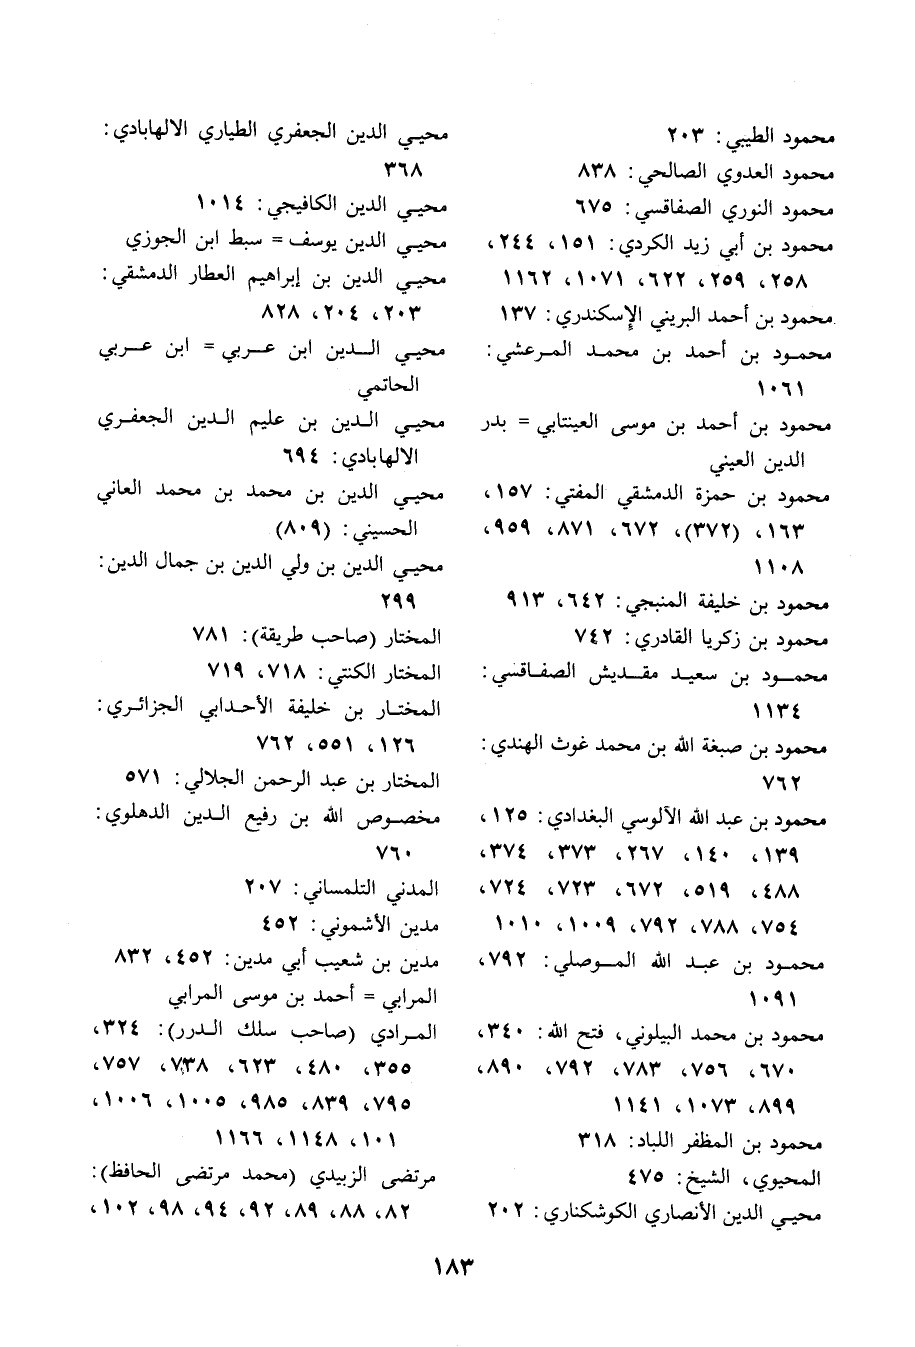 محمود الطيبي: ٢٠٣
محمود العدوي الصالحي: ٨٣٨
محمود النوري الصفاقسي: ٦٧٥
محمود بن أبي زيد الكردي: ١٥١، ٢٤٤،
٢٥٨، ٢٥٩، ٦٢٢، ١٠٧١، ١١٦٢
محمود بن أحمد البريني الإسكندري: ١٣٧
محمود بن أحمد بن محمد المرعشي:
١٠٦١
محمود بن أحمد بن موسى العينتابي = بدر
الدين العيني
محمود بن حمزة الدمشقي المفتي: ١٥٧،
١٦٣، (٣٧٢)، ٦٧٢، ٨٧١، ٩٥٩،
١١٠٨
محمود بن خليفة المنبجي: ٦٤٢، ٩١٣
محمود بن زكريا القادري: ٧٤٢
محمود بن سعيد مقديش الصفاقسي:
١١٣٤
محمود بن صبغة الله بن محمد غوث الهندي:
٧٦٢
محمود بن عبد الله الآلوسي البغدادي: ١٢٥،
١٣٩، ١٤٠، ٢٦٧، ٣٧٣، ٣٧٤،
٤٨٨، ٥١٩، ٦٧٢، ٧٢٣، ٧٢٤،
٧٥٤، ٧٨٨، ٧٩٢، ١٠٠٩، ١٠١٠
محمود بن عبد الله الموصلي: ٧٩٢،
١٠٩١
محمود بن محمد البيلوني، فتح الله: ٣٤٠،
٦٧٠، ٧٥٦، ٧٨٣، ٧٩٢، ٨٩٠،
٨٩٩، ١٠٧٣، ١١٤١
محمود بن المظفر اللباد: ٣١٨
المحيوي، الشيخ: ٤٧٥
محيي الدين الأنصاري الكوشكناري: ٢٠٢
محيي الدين الجعفري الطياري الالهابادي:
٣٦٨
محيي الدين الكافيجي: ١٠١٤
محيي الدين يوسف = سبط ابن الجوزي
محيي الدين بن إبراهيم العطار الدمشقي:
٢٠٣، ٢٠٤، ٨٢٨
محيي الدين ابن عربي = ابن عربي
الحاتمي
محيي الدين بن عليم الدين الجعفري
الالهابادي: ٦٩٤
محيي الدين بن محمد بن محمد العاني
الحسيني: (٨٠٩)
محيي الدين بن ولي الدين بن جمال الدين:
٢٩٩
المختار (صاحب طريقة): ٧٨١
المختار الكنتي: ٧١٨، ٧١٩
المختار بن خليفة الأحدابي الجزائري:
١٢٦، ٥٥١، ٧٦٢
المختار بن عبد الرحمن الجلالي: ٥٧١
مخصوص الله بن رفيع الدين الدهلوي:
٧٦٠
المدني التلمساني: ٢٠٧
مدين الأشموني: ٤٥٢
مدين بن شعيب أبي مدين: ٤٥٢، ٨٣٢
المرابي = أحمد بن موسى المرابي
المرادي (صاحب سلك الدرر): ٣٢٤،
٣٥٥، ٤٨٠، ٦٢٣، ٧٣٨، ٧٥٧،
٧٩٥، ٨٣٩، ٩٨٥، ١٠٠٥، ١٠٠٦،
١٠١، ١١٤٨، ١١٦٦
مرتضى الزبيدي (محمد مرتضى الحافظ):
٨٢، ٨٨، ٨٩، ٩٢، ٩٤، ٩٨، ١٠٢،
١٨٣